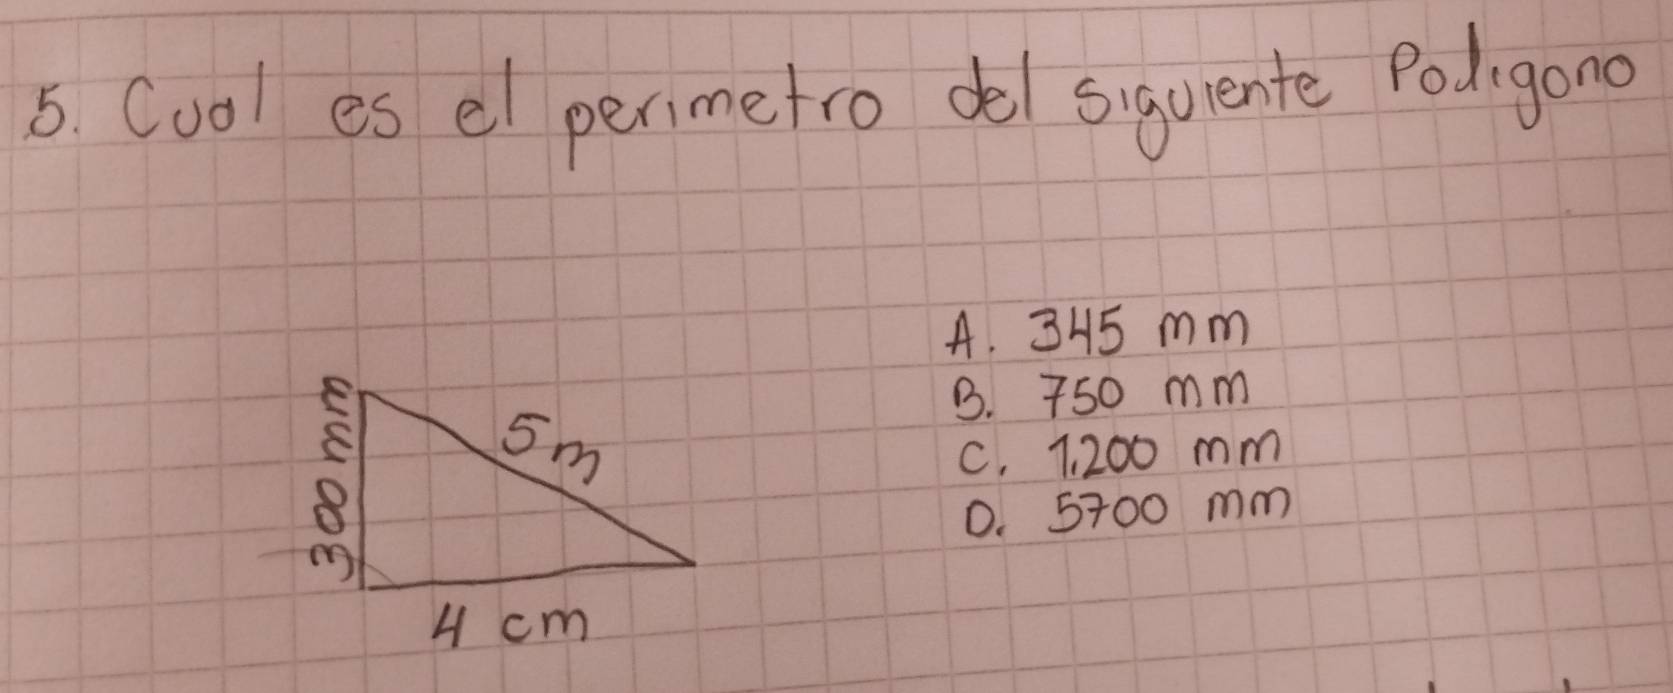 5. Cual es el perimetro del siguiente Poligono
A. 345 mm
B. 750 mm
C. 1.200 mm
D. 5700 mm
300 mm
5 m
4 cm